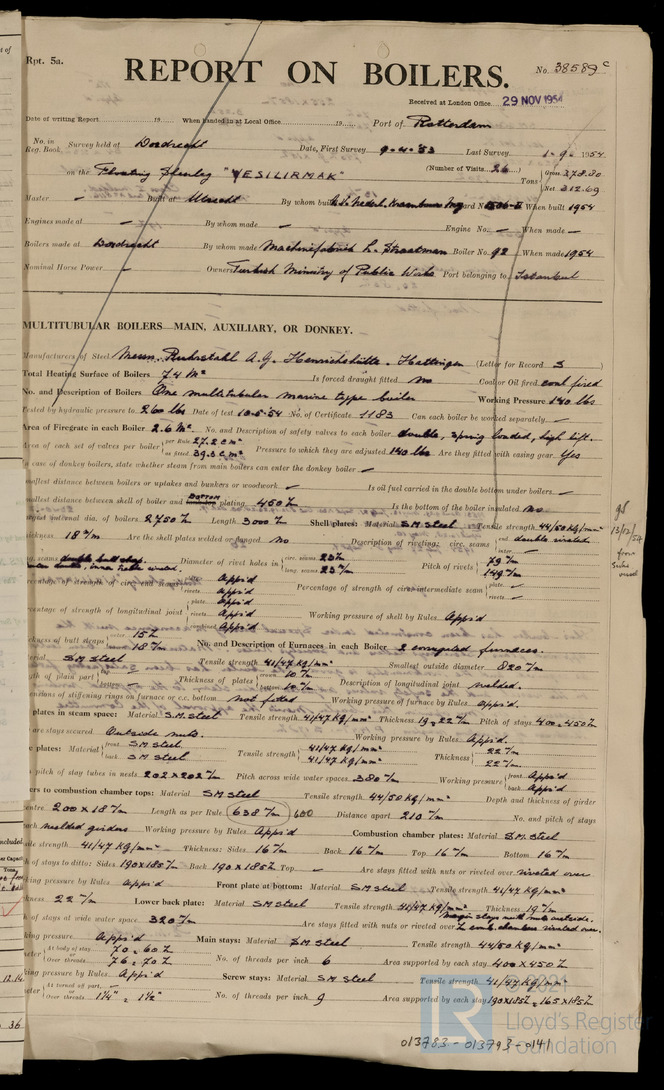 Rpt. 5a.
No. 38589c
REPORT ON BOILERS.
Received at London Office 29 NOV 1954
Date of writing Report 19 When handed in at Local Office 19 Port of Rotterdam
No. in Reg. Book. Survey held at Dordrecht Date, First Survey 9-4-53 Last Survey 1-9-1954
on the Floating "YESILIRMAK" (Number of Visits 26) Tons Gross 378.80 Net 312.69
Master — Built at Utrecht By whom built Yard No. When built 1954
Engines made at — By whom made — Engine No. — When made —
Boilers made at Dordrecht By whom made Machinefabriek L. Straatman Boiler No. 92 When made 1954
Nominal Horse Power — Owners Turkish Ministry of Public Works Port belonging to Istanbul
MULTITUBULAR BOILERS—MAIN, AUXILIARY, OR DONKEY.
Manufacturers of Steel Messrs. Ruhrstahl A.G. Henrichshütte, Hattingen (Letter for Record S)
Total Heating Surface of Boilers 74 M² Is forced draught fitted no Coal or Oil fired coal fired
No. and Description of Boilers One multitubular marine type boiler Working Pressure 140 lbs
Tested by hydraulic pressure to 260 lbs Date of test 10-5-54 No. of Certificate 1183 Can each boiler be worked separately —
Area of Firegrate in each Boiler 2.6 M². No. and Description of safety valves to each boiler double, spring loaded, high lift.
Area of each set of valves per boiler per Rule 27.2 cm² as fitted 39.3 cm² Pressure to which they are adjusted 140 lbs Are they fitted with easing gear Yes
In case of donkey boilers, state whether steam from main boilers can enter the donkey boiler —
smallest distance between boilers or uptakes and bunkers or woodwork — Is oil fuel carried in the double bottom under boilers —
smallest distance between shell of boiler and BOTTOM plating 450 Is the bottom of the boiler insulated no
internal dia. of boilers 2750 Length 3000 Shell plates: Material S.M. Steel Tensile strength 44/50 Kg/mm²
thickness 18 Are the shell plates welded or flanged no Description of riveting: circ. seams end double riveted inter. —
long. seams double butt Diameter of rivet holes in circ. seams 23 long. seams 23 Pitch of rivets 79 149
percentage of strength of circ. end plate App'd rivets App'd Percentage of strength of circ. intermediate seam plate — rivets —
percentage of strength of longitudinal joint plate App'd rivets App'd combined App'd Working pressure of shell by Rules App'd
thickness of butt straps outer 15 inner 18 No. and Description of Furnaces in each Boiler 2 corrugated furnaces.
Material S.M Steel Tensile strength 41/47 Kg/mm² Smallest outside diameter 820
length of plain part Thickness of plates crown 10 bottom 10 Description of longitudinal joint welded.
dimensions of stiffening rings on furnace or c.c. bottom not fitted Working pressure of furnace by Rules App'd.
plates in steam space: Material S.M. steel Tensile strength 41/47 Kg/mm² Thickness 19-22 Pitch of stays 400×450
are stays secured Outside nuts. Working pressure by Rules App'd.
plates: Material front S.M steel back S.M steel Tensile strength 41/47 Kg/mm² 41/47 Kg/mm² Thickness 22 22
pitch of stay tubes in nests 202×202 Pitch across wide water spaces 380 Working pressure front App'd back App'd
Girders to combustion chamber tops: Material S.M steel Tensile strength 44/50 Kg/mm² Depth and thickness of girder
centre 200×18 Length as per Rule 638 600 Distance apart 210 No. and pitch of stays
each welded girders Working pressure by Rules App'd Combustion chamber plates: Material S.M. steel
Tensile strength 41/47 Kg/mm² Thickness: Sides 16 Back 16 Top 16 Bottom 16
pitch of stays to ditto: Sides 190×185 Back 190×185 Top — Are stays fitted with nuts or riveted over riveted over
Working pressure by Rules App'd Front plate at bottom: Material S.M steel Tensile strength 41/47 Kg/mm²
Thickness 22 Lower back plate: Material S.M steel Tensile strength 41/47 Kg/mm² Thickness 19
pitch of stays at wide water space 320 Are stays fitted with nuts or riveted over margin stays with nuts outside. comb. chamber riveted over.
Working pressure App'd Main stays: Material S.M steel Tensile strength 44/50 Kg/mm²
Diameter At body of stay 70-60 Over threads 76-70 No. of threads per inch 6 Area supported by each stay 400×450
Working pressure by Rules App'd Screw stays: Material S.M steel Tensile strength 41/47 Kg/mm²
Diameter At turned off part — Over threads 1¼"-1½" No. of threads per inch 9 Area supported by each stay 190×185-165×185
© 2021
LR
Lloyd's Register
Foundation
013783-013793-0141